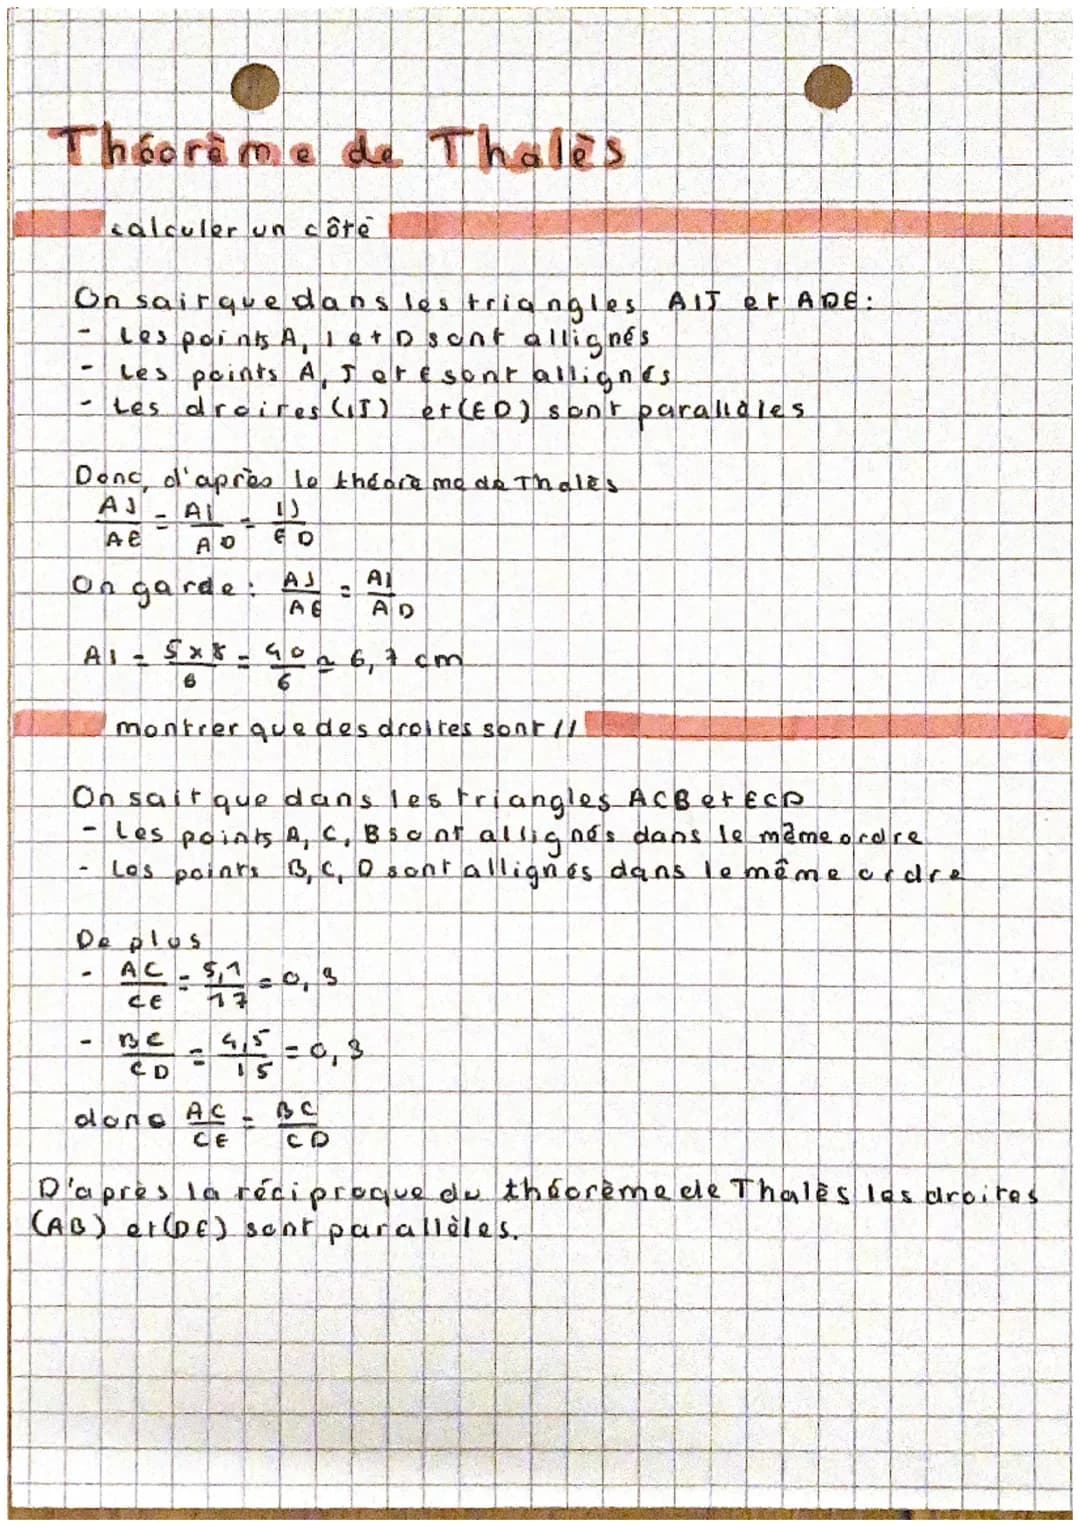 Théorème de Thalès
calculer un côté
On sait que dans les triangles AIJ et ADE:
- Les points A, I et D sont allignés
- Les points A, J et E sont allignés
- Les droites (IJ) et (ED) sont parallèles
Donc, d'après le théorème de Thalès
AJ/AE = AI/AD = IJ/ED
On garde: AJ/AE = AI/AD
AI = 5x8/6 = 40/6 ≃ 6,7 cm
montrer que des droites sont //
On sait que dans les triangles ACB et ECD
- Les points A, C, B sont allignés dans le même ordre
- Les points B, C, D sont allignés dans le même ordre
De plus
- AC/CE = 5,1/17 = 0,3
- BC/CD = 4,5/15 = 0,3
donc AC/CE = BC/CD
D'après la réciproque du théorème de Thalès les droites
(AB) et (DE) sont parallèles.